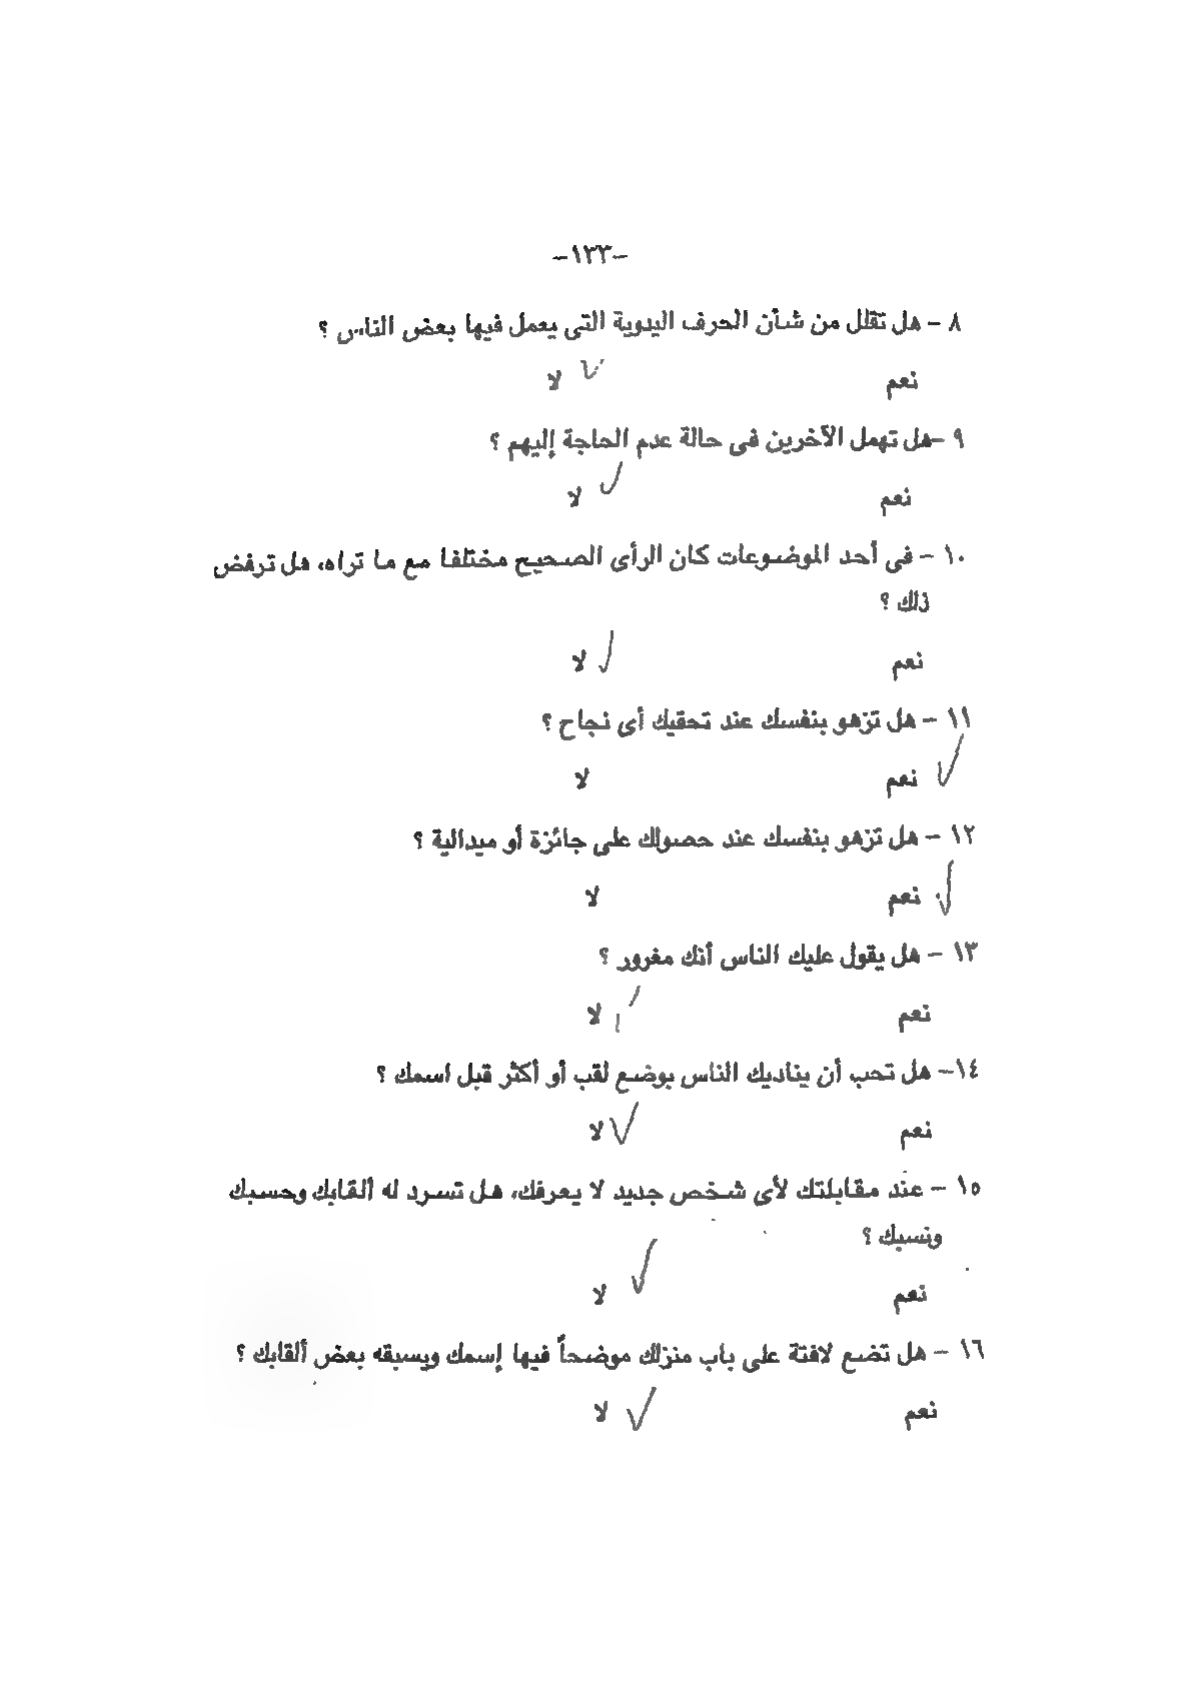 -١٣٣-
٨ - هل تقلل من شأن الحرف اليدوية التى يعمل فيها بعض الناس ؟
نعم ✓ لا
٩ -هل تهمل الآخرين فى حالة عدم الحاجة إليهم ؟
نعم ✓ لا
١٠ - فى أحد الموضوعات كان الرأى الصحيح مختلفا مع ما تراه، هل ترفض
ذلك ؟
نعم ✓ لا
١١ - هل تزهو بنفسك عند تحقيك أى نجاح ؟
✓ نعم لا
١٢ - هل تزهو بنفسك عند حصولك على جائزة أو ميدالية ؟
✓ نعم لا
١٣ - هل يقول عليك الناس أنك مغرور ؟
نعم ✓ لا
١٤- هل تحب أن يناديك الناس بوضع لقب أو أكثر قبل اسمك ؟
نعم ✓ لا
١٥ - عند مقابلتك لأى شخص جديد لا يعرفك، هل تسرد له ألقابك وحسبك
ونسبك ؟
نعم ✓ لا
١٦ - هل تضع لافتة على باب منزلك موضحاً فيها إسمك ويسبقه بعض ألقابك ؟
نعم ✓ لا